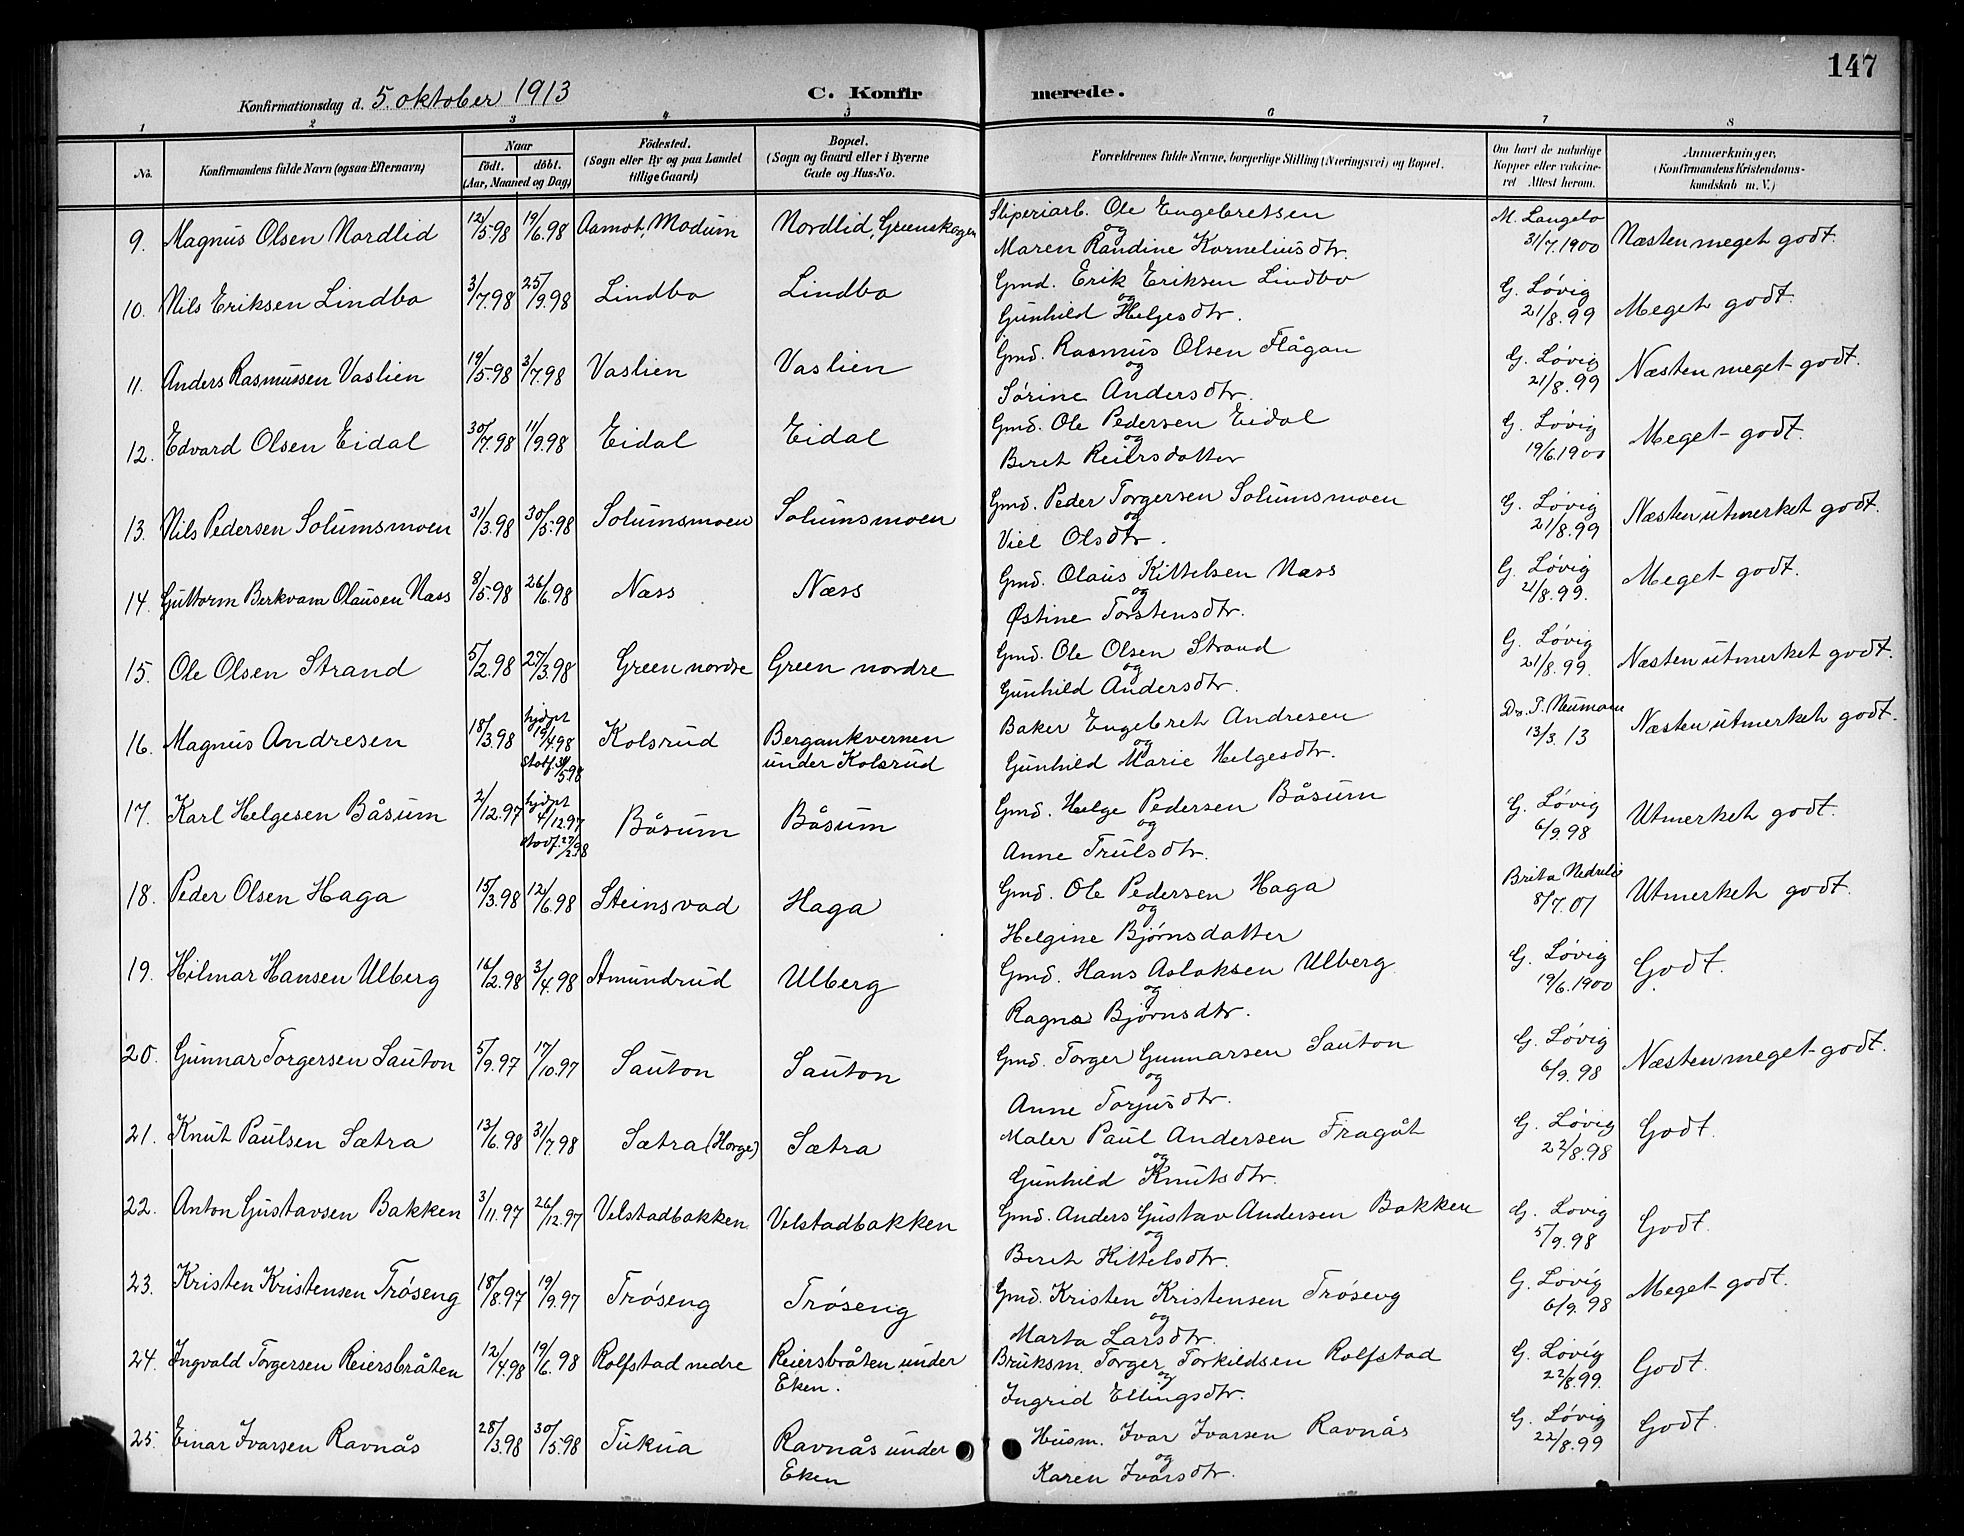 147
Konfirmationsdag d. 5 oktober 1913 C. Konfirmerede.
1 2 3 4 5 6 7 8
No. Konfirmandens fulde Navn (ogsaa Efternavn) Naar født. døbt. (Aar, Maaned og Dag) Födested. (Sogn eller By og paa Landet tillige Gaard) Bopæl. (Sogn og Gaard eller i Byerne Gade og Hus-No. Forældrenes fulde Navne, borgerlige Stilling (Næringsvei) og Bopæl. Om havt de naturlige Kopper eller vaccineret Attest herom. Anmærkninger. (Konfirmandens Kristendomskundskab m. V.)
9. Magnus Olsen Nordlid 12/5.98 19/6.98 Aamot, Modum Nordlid, Grenskogen Sliperiarb. Ole Engebretsen og Maren Randine Korneliusdtr. M. Langebo 31/7.1900 Næsten meget godt.
10. Nils Eriksen Lindbo 3/7.98 25/9.98 Lindbo Lindbo Gmd. Erik Eriksen Lindbo og Gunhild Helgesdtr. G. Løvig 21/8.99 Meget godt.
11. Anders Rasmussen Vaslien 19/5.98 3/7.98 Vaslien Vaslien Gmd. Rasmus Olsen Flågan og Sørine Andersdtr. G. Løvig 21/8.99 Næsten meget godt.
12. Edvard Olsen Eidal 30/7.98 11/9.98 Eidal Eidal Gmd. Ole Pedersen Eidal og Beret Reiersdatter G. Løvig 19/6.1900 Meget godt.
13. Nils Pedersen Solumsmoen 31/3.98 30/5.98 Solumsmoen Solumsmoen Gmd. Peder Torgersen Solumsmoen og Viel Olsdtr. G. Løvig 21/8.99 Næsten utmerket godt.
14. Guttorm Berkvam Olausen Næss 8/5.98 26/6.98 Næss Næss Gmd. Olaus Kittelsen Næss og Østine Torstensdtr. G. Løvig 21/8.99. Meget godt.
15. Ole Olsen Strand 5/2.98 27/3.98 Green nordre Green nordre Gmd. Ole Olsen Strand og Gunhild Andersdtr. G. Løvig 21/8.99. Næsten utmerket godt.
16. Magnus Andresen 18/3.98 hjdøpt 19/4.98 Kolsrud Bergankvernen under Kolsrud Baker Engebret Andresen og Gunhild Marie Helgesdtr. Dr. T. Neumann 13/3.13 Næsten utmerket godt.
17. Karl Helgesen Båsum 2/12.97 hjdøpt 4/12.97 27/2.98 Båsum Båsum Gmd. Helge Pedersen Båsum og Anne Trulsdtr. G. Løvig 6/9.98 Utmerket godt.
18. Peder Olsen Haga 15/3.98 12/6.98 Steinsvad Haga Gmd. Ole Pedersen Haga og Helgine Bjørnsdatter Brita Nedrelid 8/7.01 Utmerket godt.
19. Hilmar Hansen Ulberg 16/2.98 3/4.98 Amundrud Ulberg Gmd. Hans Aslaksen Ulberg og Ragna Bjørnsdtr. G. Løvig 19/6.1900 Godt.
20. Gunnar Torgersen Sauton 5/9.97 17/10.97 Sauton Sauton Gmd. Torger Gunnarsen Sauton og Anne Torjusdtr. G. Løvig 6/9.98 Næsten meget godt.
21. Knut Paulsen Sætra 13/6.98 31/7.98 Sætra (Horge) Sætra Maler Paul Andersen Fragåt og Gunhild Knutsdtr. G. Løvig 22/8.98 Godt.
22. Anton Gustavsen Bakken 3/11.97 26/12.97 Velstadbakken Velstadbakken Gmd. Anders Gustav Andersen Bakken og Beret Kittelsdtr. G. Løvig 5/9.98 Godt.
23. Kristen Kristensen Trøseng 18/8.97 19/9.97 Trøseng Trøseng Gmd. Kristen Kristensen Trøseng og Marta Larsdtr. G. Løvig 6/9.98 Meget godt.
24. Ingvald Torgersen Reiersbråten 12/4.98 19/6.98 Rolfstad nedre Reiersbråten under Eken. Bruksm. Torger Torkildsen Rolfstad og Ingrid Ellingsdtr. G. Løvig 22/8.99. Godt.
25. Einar Ivarsen Ravnås 28/3.98 30/5.98 Tukua Ravnås under Eken Husm. Ivar Ivarsen Ravnås og Karen Ivarsdtr. G. Løvig 22/8.99 Godt.